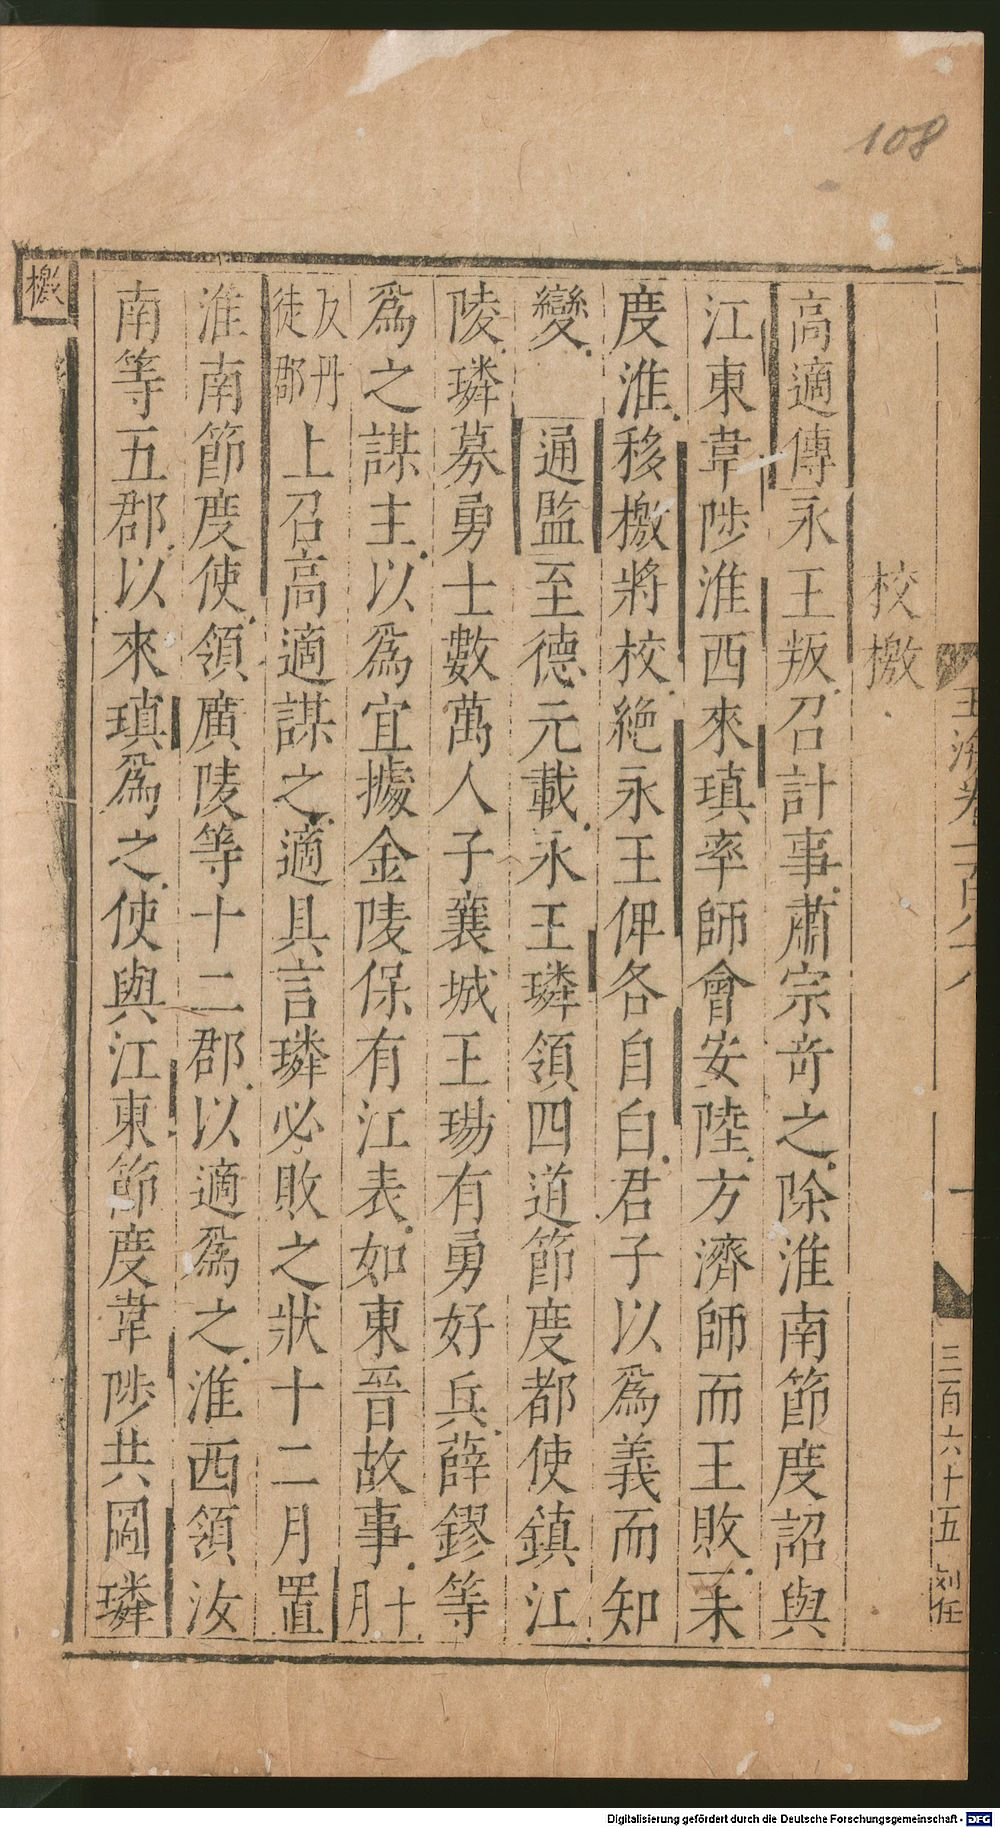 108
玉海卷一百八十八
十
三百六十五
刘任
校檄
高適傳永王叛召計事肅宗竒之除淮南節度詔與
江東韋陟淮西來瑱率師會安陸方濟師而王敗未
度淮移檄將校絶永王俾各自白君子以爲義而知
變通監至德元載永王璘領四道節度都使鎮江
陵璘募勇士數萬人子襄城王瑒有勇好兵薛鏐等
爲之謀主以爲宜據金陵保有江表如東晉故事十
月
反丹
徒郡上召高適謀之適具言璘必敗之狀十二月置
淮南節度使領廣陵等十二郡以適爲之淮西領汝
南等五郡以來瑱爲之使與江東節度韋陟共圖璘
檄
Digitalisierung gefördert durch die Deutsche Forschungsgemeinschaft - DFG